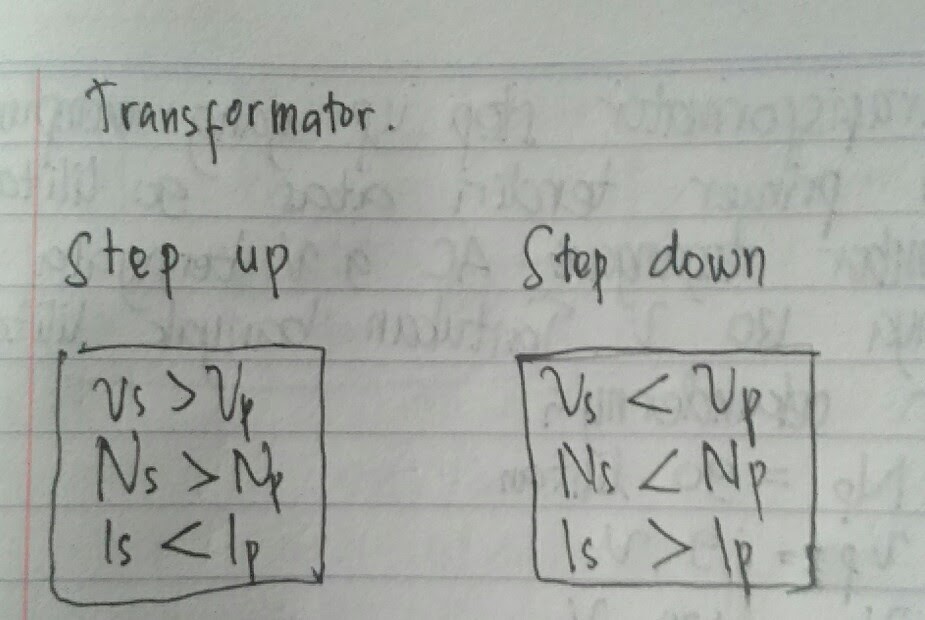 Transformator.
Step up
Vs > Vp
Ns > Np
Is < Ip
Step down
Vs < Vp
Ns < Np
Is > Ip